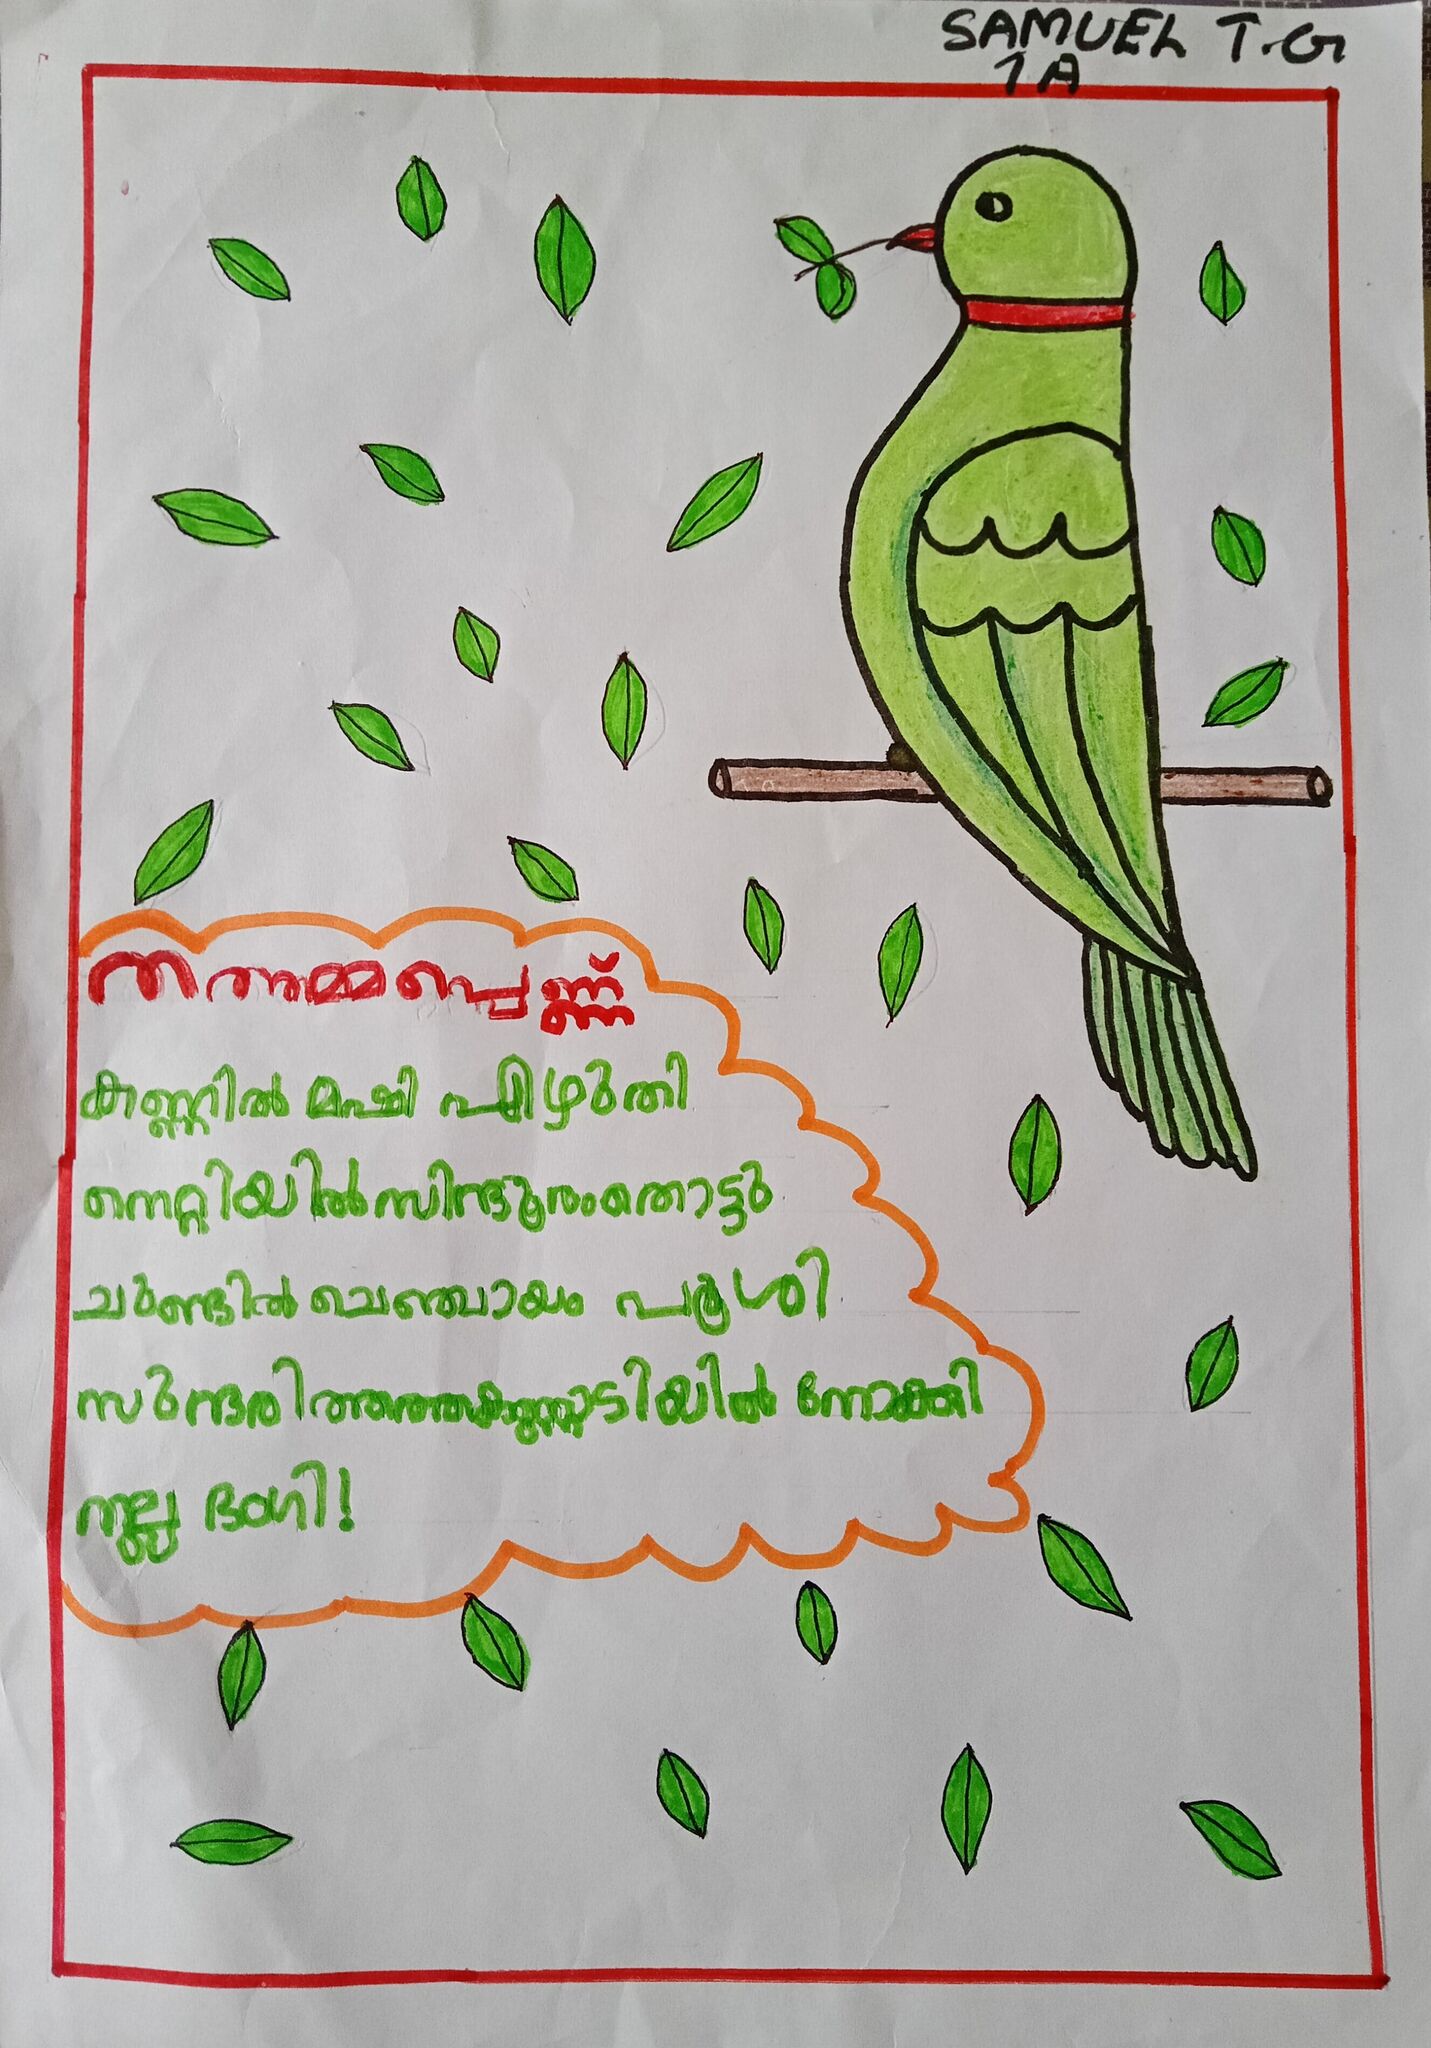 SAMUEL T.G
1A
തത്തമ്മപ്പെണ്ണ്
കണ്ണിൽ മഷി എഴുതി
നെറ്റിയിൽ സിന്ദൂരംതൊട്ടു
ചുണ്ടിൽ ചെഞ്ചായം പൂശി
സുന്ദരിത്തത്ത കണ്ണാടിയിൽ നോക്കി
നല്ല ഭംഗി!